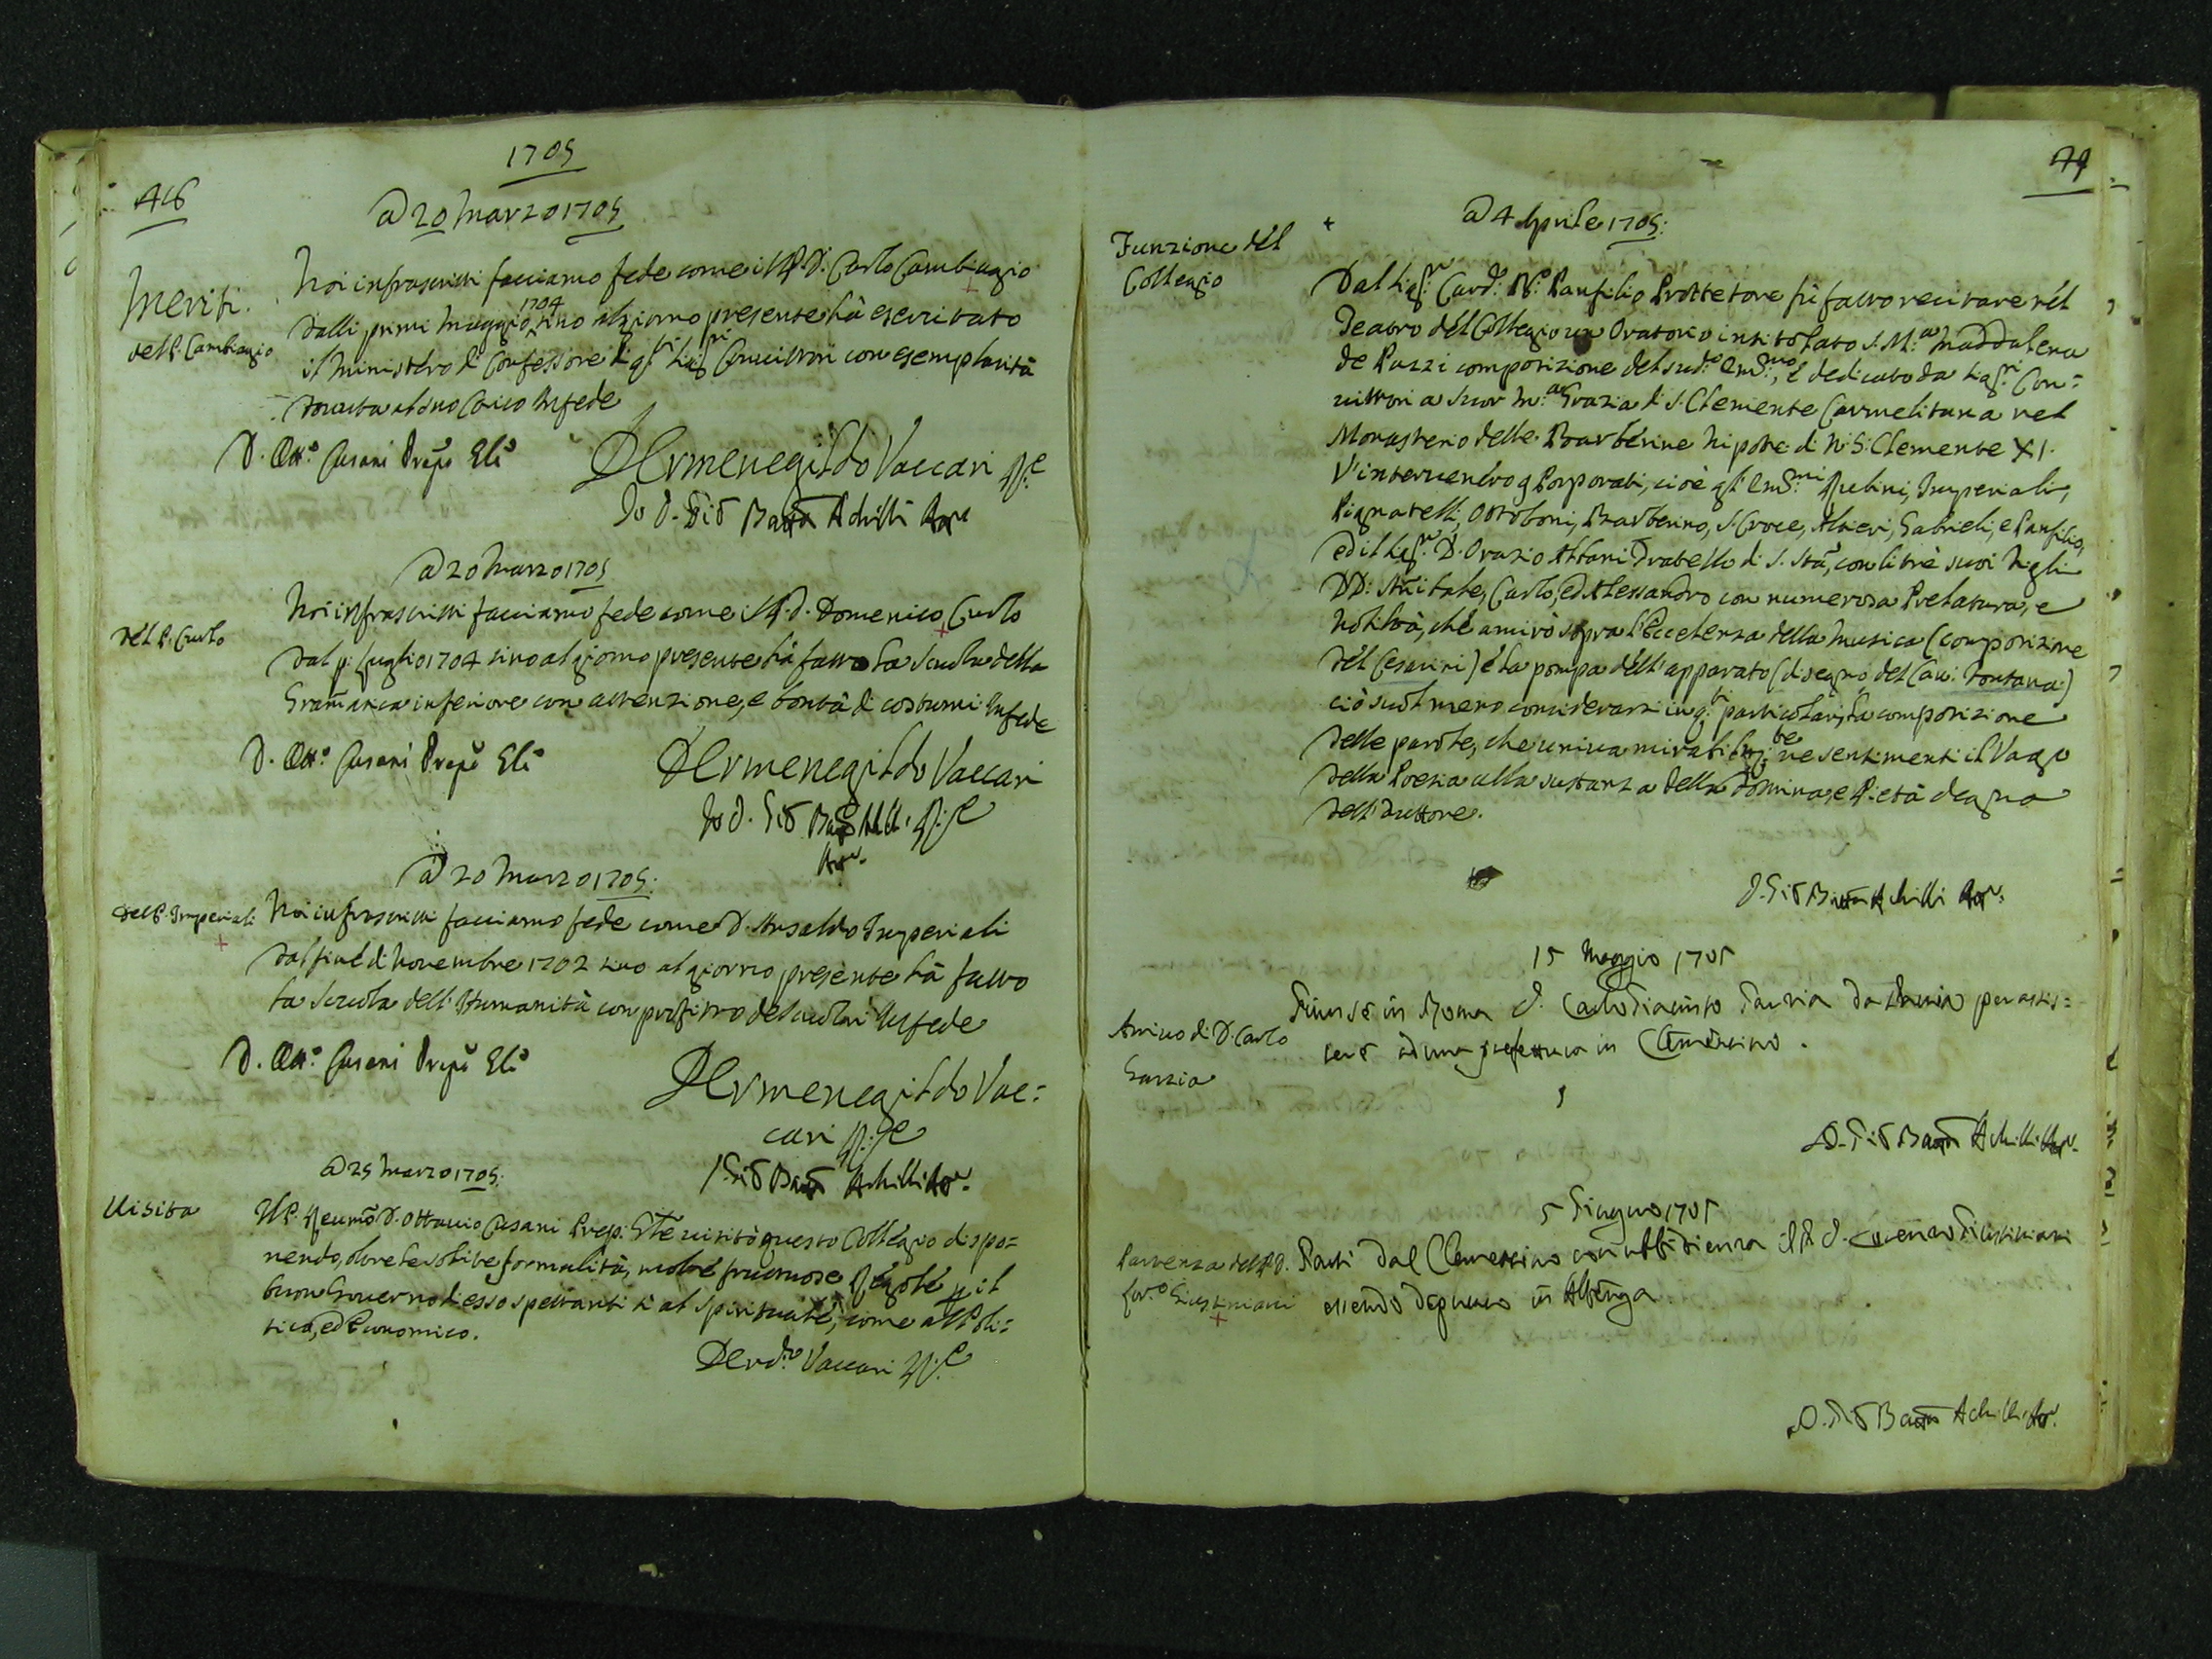 1705
46
A 20 Marzo 1705
Meriti
del P. Cambiagio
Noi infrascritti facciamo fede come il P. D. Carlo Cambiagio
dalli primi Maggio 1704 sino al giorno presente hà esercitato
il Ministero di Confessore di qsti. Sigri. Convittori con esemplarità
dovuta al suo Carico Infede
D. Ott.o Cusani Prepo Gle
D Ermenegildo Vaccari R.e
Io D. Gio Batta Achilli Attr.
A 20 Marzo 1705
del P. Curlo
Noi infrascritti facciamo fede come il P. D. Domenico Curlo
dal p. Luglio 1704 sino al giorno presente hà fatto la Scuola della
Gramatica inferiore con attenzione, e bontà di costumi Infede
D. Ott.o Cusani Prepo Gle
D Ermenegildo Vaccari
Io D. Gio Batta Achilli R.e
Attr.
A 20 Marzo 1705.
del P. Imperiali
Noi infrascritti facciamo fede come D. Ansaldo Imperiali
dal fine di Novembre 1702 sino al giorno presente hà fatto
la Scuola dell'Humanità con profitto de Scolari Infede
D. Ott.o Cusani Prepo Gle
D Ermenegildo Vac=
cari R.e
D. Gio Batta Achilli Attr.
A 25 Marzo 1705.
Visita
Il P. Reumo D. Ottavio Cusani Prep. Gle visitò questo Collegio dispo=
nendo, oltre le solite formalità, molte fruttuose Regole p il
buon Governo di esso spettanti sì al Spirituale, come al Poli=
tico, ed Economico.
D Erdo. Vaccari R.e
79
A 4 Aprile 1705:
Funzione del
Collegio
Dal Sigr. Card: Bo. Panfilio Protettore fù fatto recitare nel
Teatro del Collegio un Oratorio intitolato S. M:a Maddalena
de Pazzi composizione del sudo. Emo., e dedicato da Sigri. Con=
vittori a Suor Ma. Grazia di S. Clemente Carmelitana nel
Monasterio delle Barberine Nipote di N. S. Clemente XI.
V'intervennero 9 Porporati, cioè gl'Emi. Rubini, Imperiali,
Pignatelli, Ottoboni, Barberino, S. Croce, Altieri, Gabrieli, e Panfilio,
ed il Sigr. D. Orazio Albani Fratello di S. Stà, con li trè suoi Figli
DD: Anibale, Carlo, ed Alessandro con numerosa Prelatura, e
Nobiltà, che amirò sopra l'Eccelenza della Musica (composizione
del Cesarini) e la pompa dell'apparato (disegno del Cav: Fontana)
ciò suol meno considerarsi in qti. particolari, la composizione
delle parole, che univa mirabilmte. ne sentimenti il Vago
della Poesia alla sustanza della Dottrina, e Pietà degna
dell'Auttore.
D. Gio Batta Achilli Attr.
15 Maggio 1705
Arrivo di D. Carlo
Sauzia
Giunse in Roma D. Carlo Giacinto Sauria da Pavia per assis=
tere ad una prefettura in Clementino.
D. Gio Batta Achilli Attr.
5 Giugno 1705
Partenza del P. D.
Giustiniani
Partì dal Clementino con ubbidienza il P. D. Giustiniani
essendo deputato in Albenga
D. Gio Batta Achilli Attr.